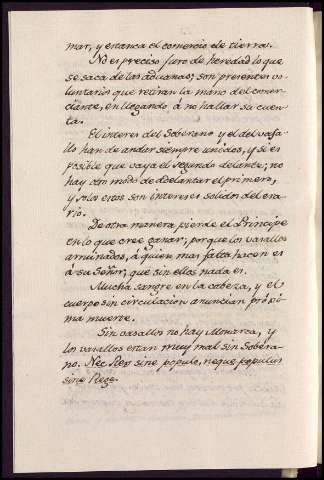 mar, y estanca el comercio de tierra.
No es preciso furo de heredad lo que
se saca de las aduanas; son presentes vo-
luntarios que retiran la mano del comer-
ciante, en llegando á no hallar su cuen-
ta.
El interes del Soberano y el del vasa-
llo han de andar siempre unidos, y si es
posible que vaya el segundo delante; no
hay otro modo de adelantar el primero,
y solos estos son intereses solidos del era-
rio.
De otra manera pierde el Principe
en lo que cree ganar; porque los vasallos
arruinados, á quien mas falta hacen es
á su Señor, que sin ellos nada es.
Mucha sangre en la cabeza, y el
cuerpo sin circulacion anuncian próxi-
ma muerte.
Sin vasallos no hay Monarca, y
los vasallos estan muy mal sin Sobera-
no. Nec Rex sine populo, neque populus
sine Rege.